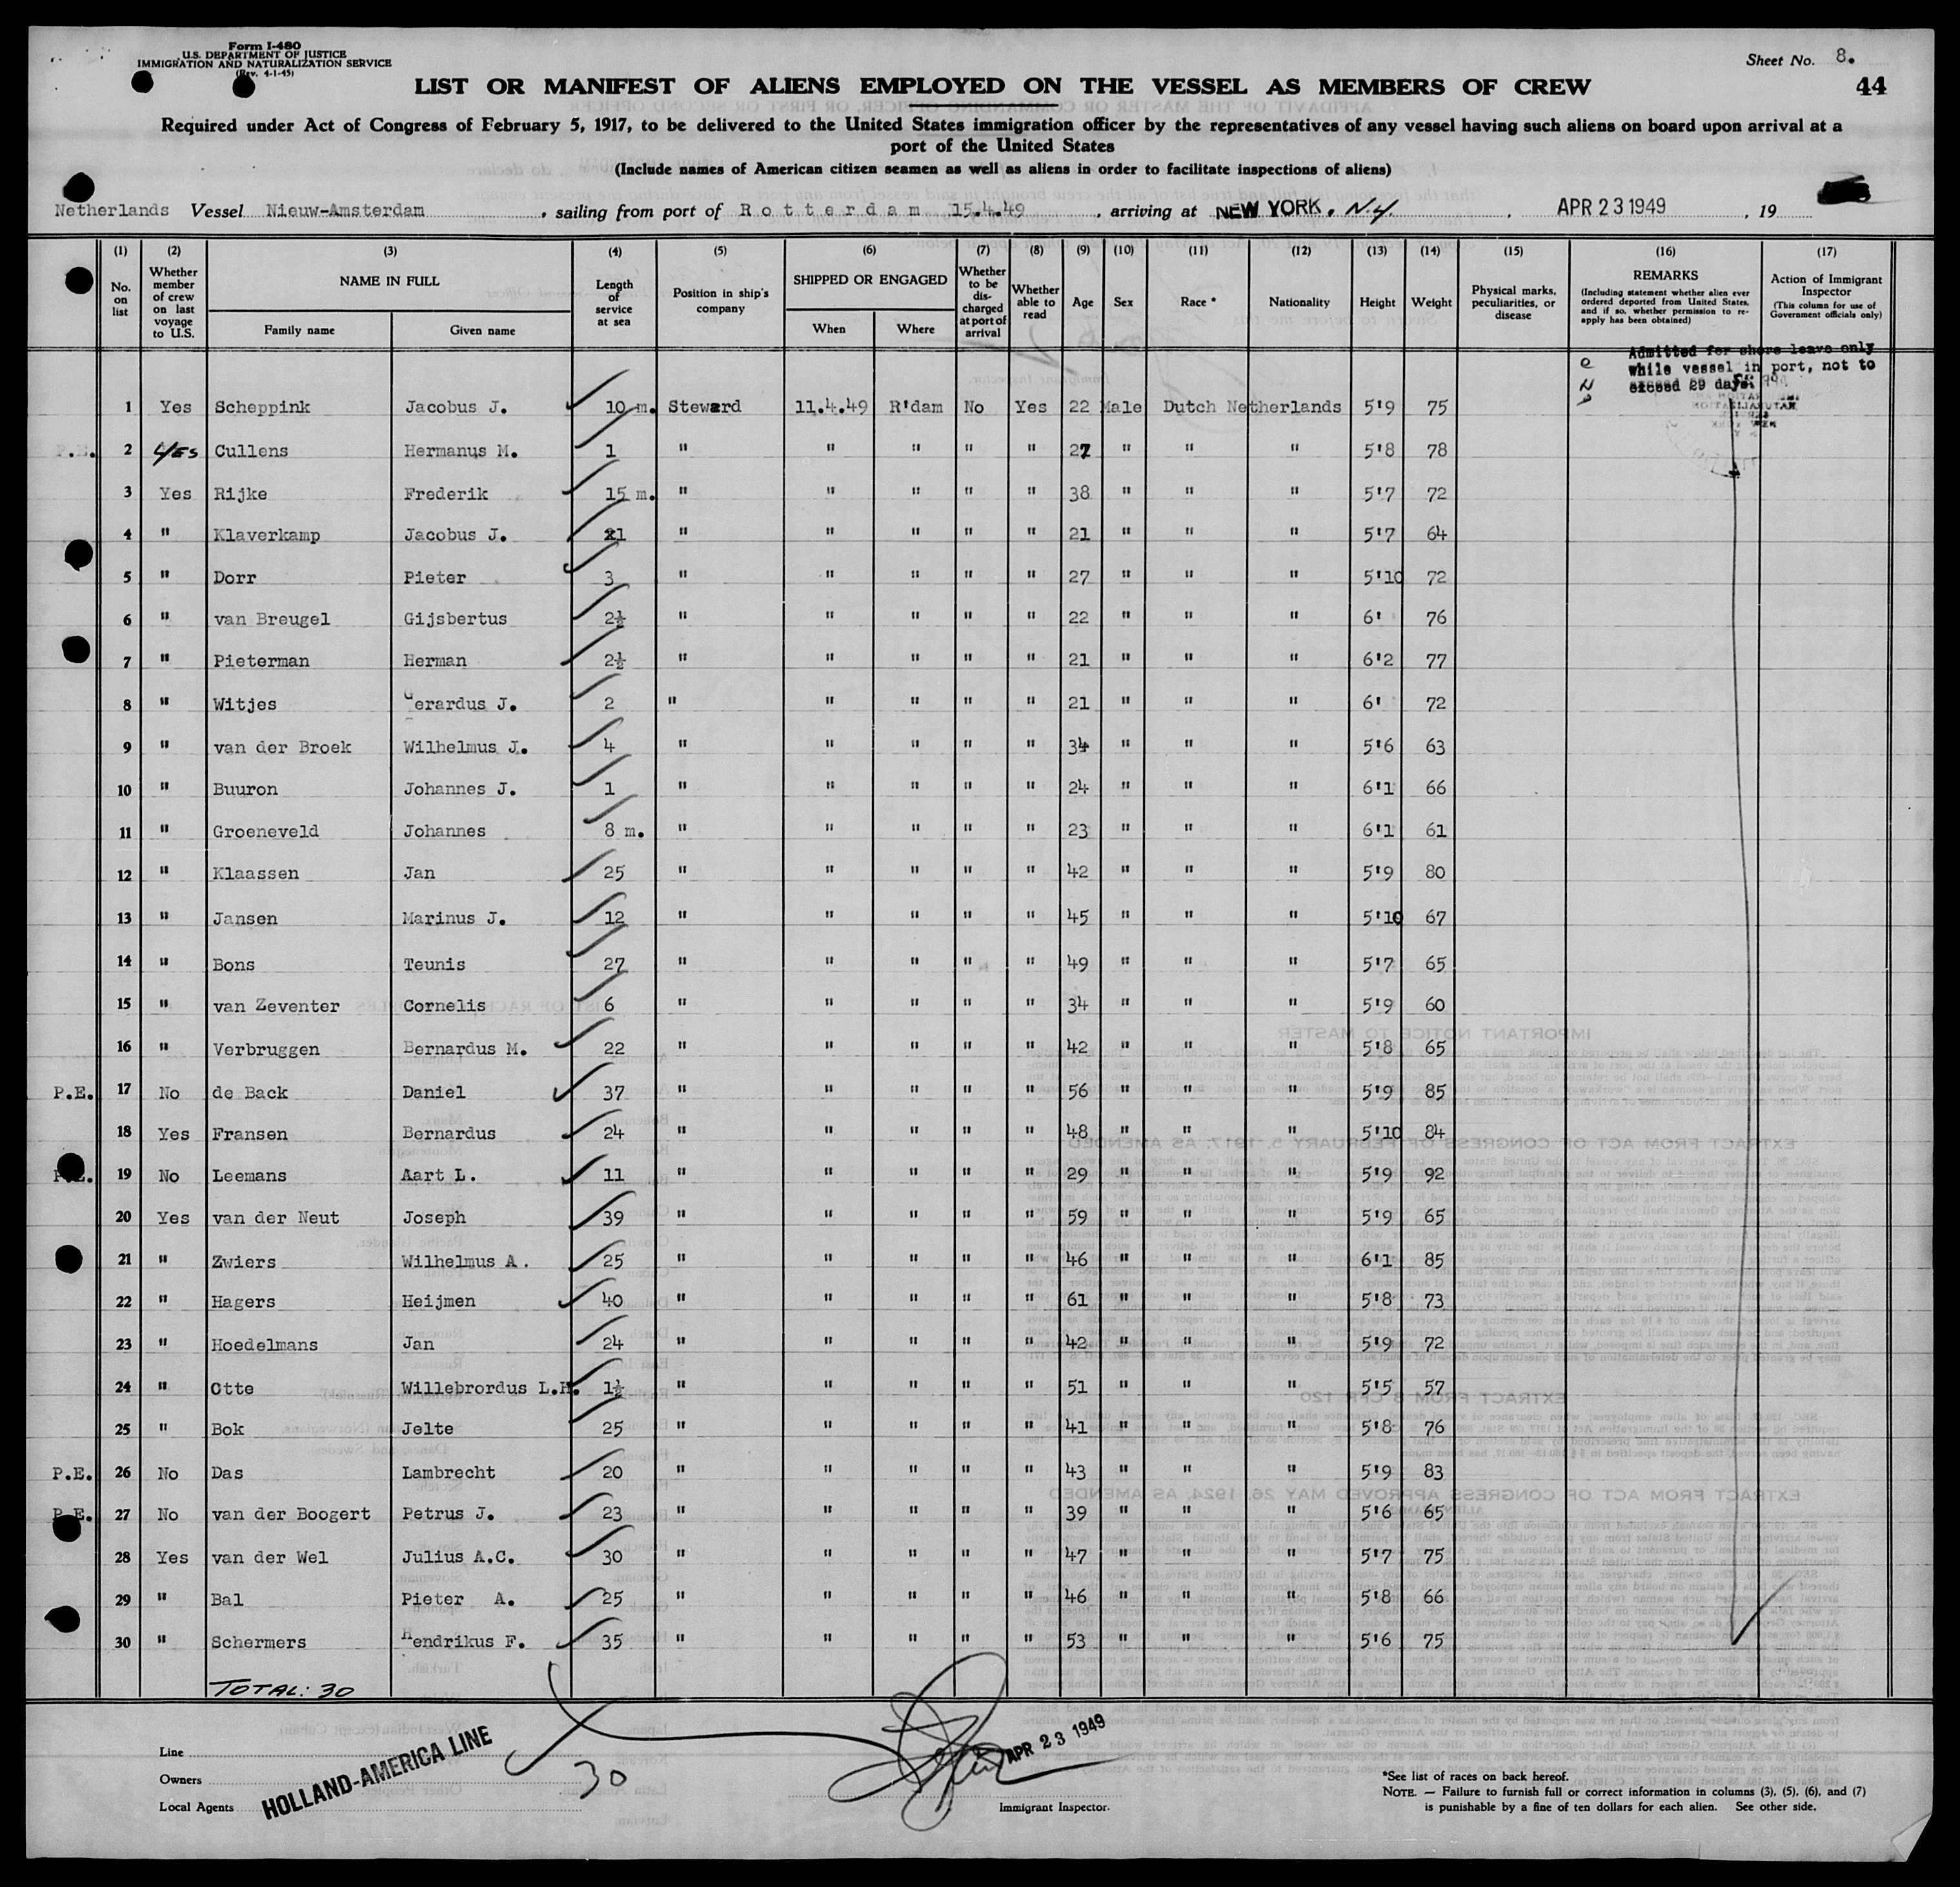 Form I-480
U.S. DEPARTMENT OF JUSTICE
IMMIGRATION AND NATURALIZATION SERVICE
(Rev. 4-1-45)
Sheet No. 8.
44
LIST OR MANIFEST OF ALIENS EMPLOYED ON THE VESSEL AS MEMBERS OF CREW
Required under Act of Congress of February 5, 1917, to be delivered to the United States immigration officer by the representatives of any vessel having such aliens on board upon arrival at a
port of the United States
(Include names of American citizen seamen as well as aliens in order to facilitate inspections of aliens)
Netherlands Vessel Nieuw-Amsterdam, sailing from port of Rotterdam 15.4.49, arriving at NEW YORK, N.Y., APR 23 1949, 19
(1) No. on list
(2) Whether member of crew on last voyage to U.S.
(3) NAME IN FULL
Family name
Given name
(4) Length of service at sea
(5) Position in ship's company
(6) SHIPPED OR ENGAGED
When
Where
(7) Whether to be discharged at port of arrival
(8) Whether able to read
(9) Age
(10) Sex
(11) Race *
(12) Nationality
(13) Height
(14) Weight
(15) Physical marks, peculiarities, or disease
(16) REMARKS
(Including statement whether alien ever ordered deported from United States, and if so, whether permission to re-apply has been obtained)
(17) Action of Immigrant Inspector
(This column for use of Government officials only)
Admitted for shore leave only
while vessel in port, not to
exceed 29 days.
1 Yes Scheppink Jacobus J. 10 m. Steward 11.4.49 R'dam No Yes 22 Male Dutch Netherlands 5'9 75
P.E. 2 Yes Cullens Hermanus M. 1 " " " " " 27 " " " 5'8 78
3 Yes Rijke Frederik 15 m. " " " " " 38 " " " 5'7 72
4 " Klaverkamp Jacobus J. 21 " " " " " 21 " " " 5'7 64
5 " Dorr Pieter 3 " " " " " 27 " " " 5'10 72
6 " van Breugel Gijsbertus 2½ " " " " " 22 " " " 6' 76
7 " Pieterman Herman 2½ " " " " " 21 " " " 6'2 77
8 " Witjes Gerardus J. 2 " " " " " 21 " " " 6' 72
9 " van der Broek Wilhelmus J. 4 " " " " " 34 " " " 5'6 63
10 " Buuron Johannes J. 1 " " " " " 24 " " " 6'1 66
11 " Groeneveld Johannes 8 m. " " " " " 23 " " " 6'1 61
12 " Klaassen Jan 25 " " " " " 42 " " " 5'9 80
13 " Jansen Marinus J. 12 " " " " " 45 " " " 5'10 67
14 " Bons Teunis 27 " " " " " 49 " " " 5'7 65
15 " van Zeventer Cornelis 6 " " " " " 34 " " " 5'9 60
16 " Verbruggen Bernardus M. 22 " " " " " 42 " " " 5'8 65
P.E. 17 No de Back Daniel 37 " " " " " 56 " " " 5'9 85
18 Yes Fransen Bernardus 24 " " " " " 48 " " " 5'10 84
P.E. 19 No Leemans Aart L. 11 " " " " " 29 " " " 5'9 92
20 Yes van der Neut Joseph 39 " " " " " 59 " " " 5'9 65
21 " Zwiers Wilhelmus A. 25 " " " " " 46 " " " 6'1 85
22 " Hagers Heijmen 40 " " " " " 61 " " " 5'8 73
23 " Hoedelmans Jan 24 " " " " " 42 " " " 5'9 72
24 " Otte Willebrordus L.H. 1½ " " " " " 51 " " " 5'5 57
25 " Bok Jelte 25 " " " " " 41 " " " 5'8 76
P.E. 26 No Das Lambrecht 20 " " " " " 43 " " " 5'9 83
P.E. 27 No van der Boogert Petrus J. 23 " " " " " 39 " " " 5'6 65
28 Yes van der Wel Julius A.C. 30 " " " " " 47 " " " 5'7 75
29 " Bal Pieter A. 25 " " " " " 46 " " " 5'8 66
30 " Schermers Hendrikus F. 35 " " " " " 53 " " " 5'6 75
TOTAL: 30
Line
Owners
Local Agents
HOLLAND-AMERICA LINE
30
APR 23 1949
Immigrant Inspector.
*See list of races on back hereof.
NOTE. — Failure to furnish full or correct information in columns (3), (5), (6), and (7)
is punishable by a fine of ten dollars for each alien. See other side.